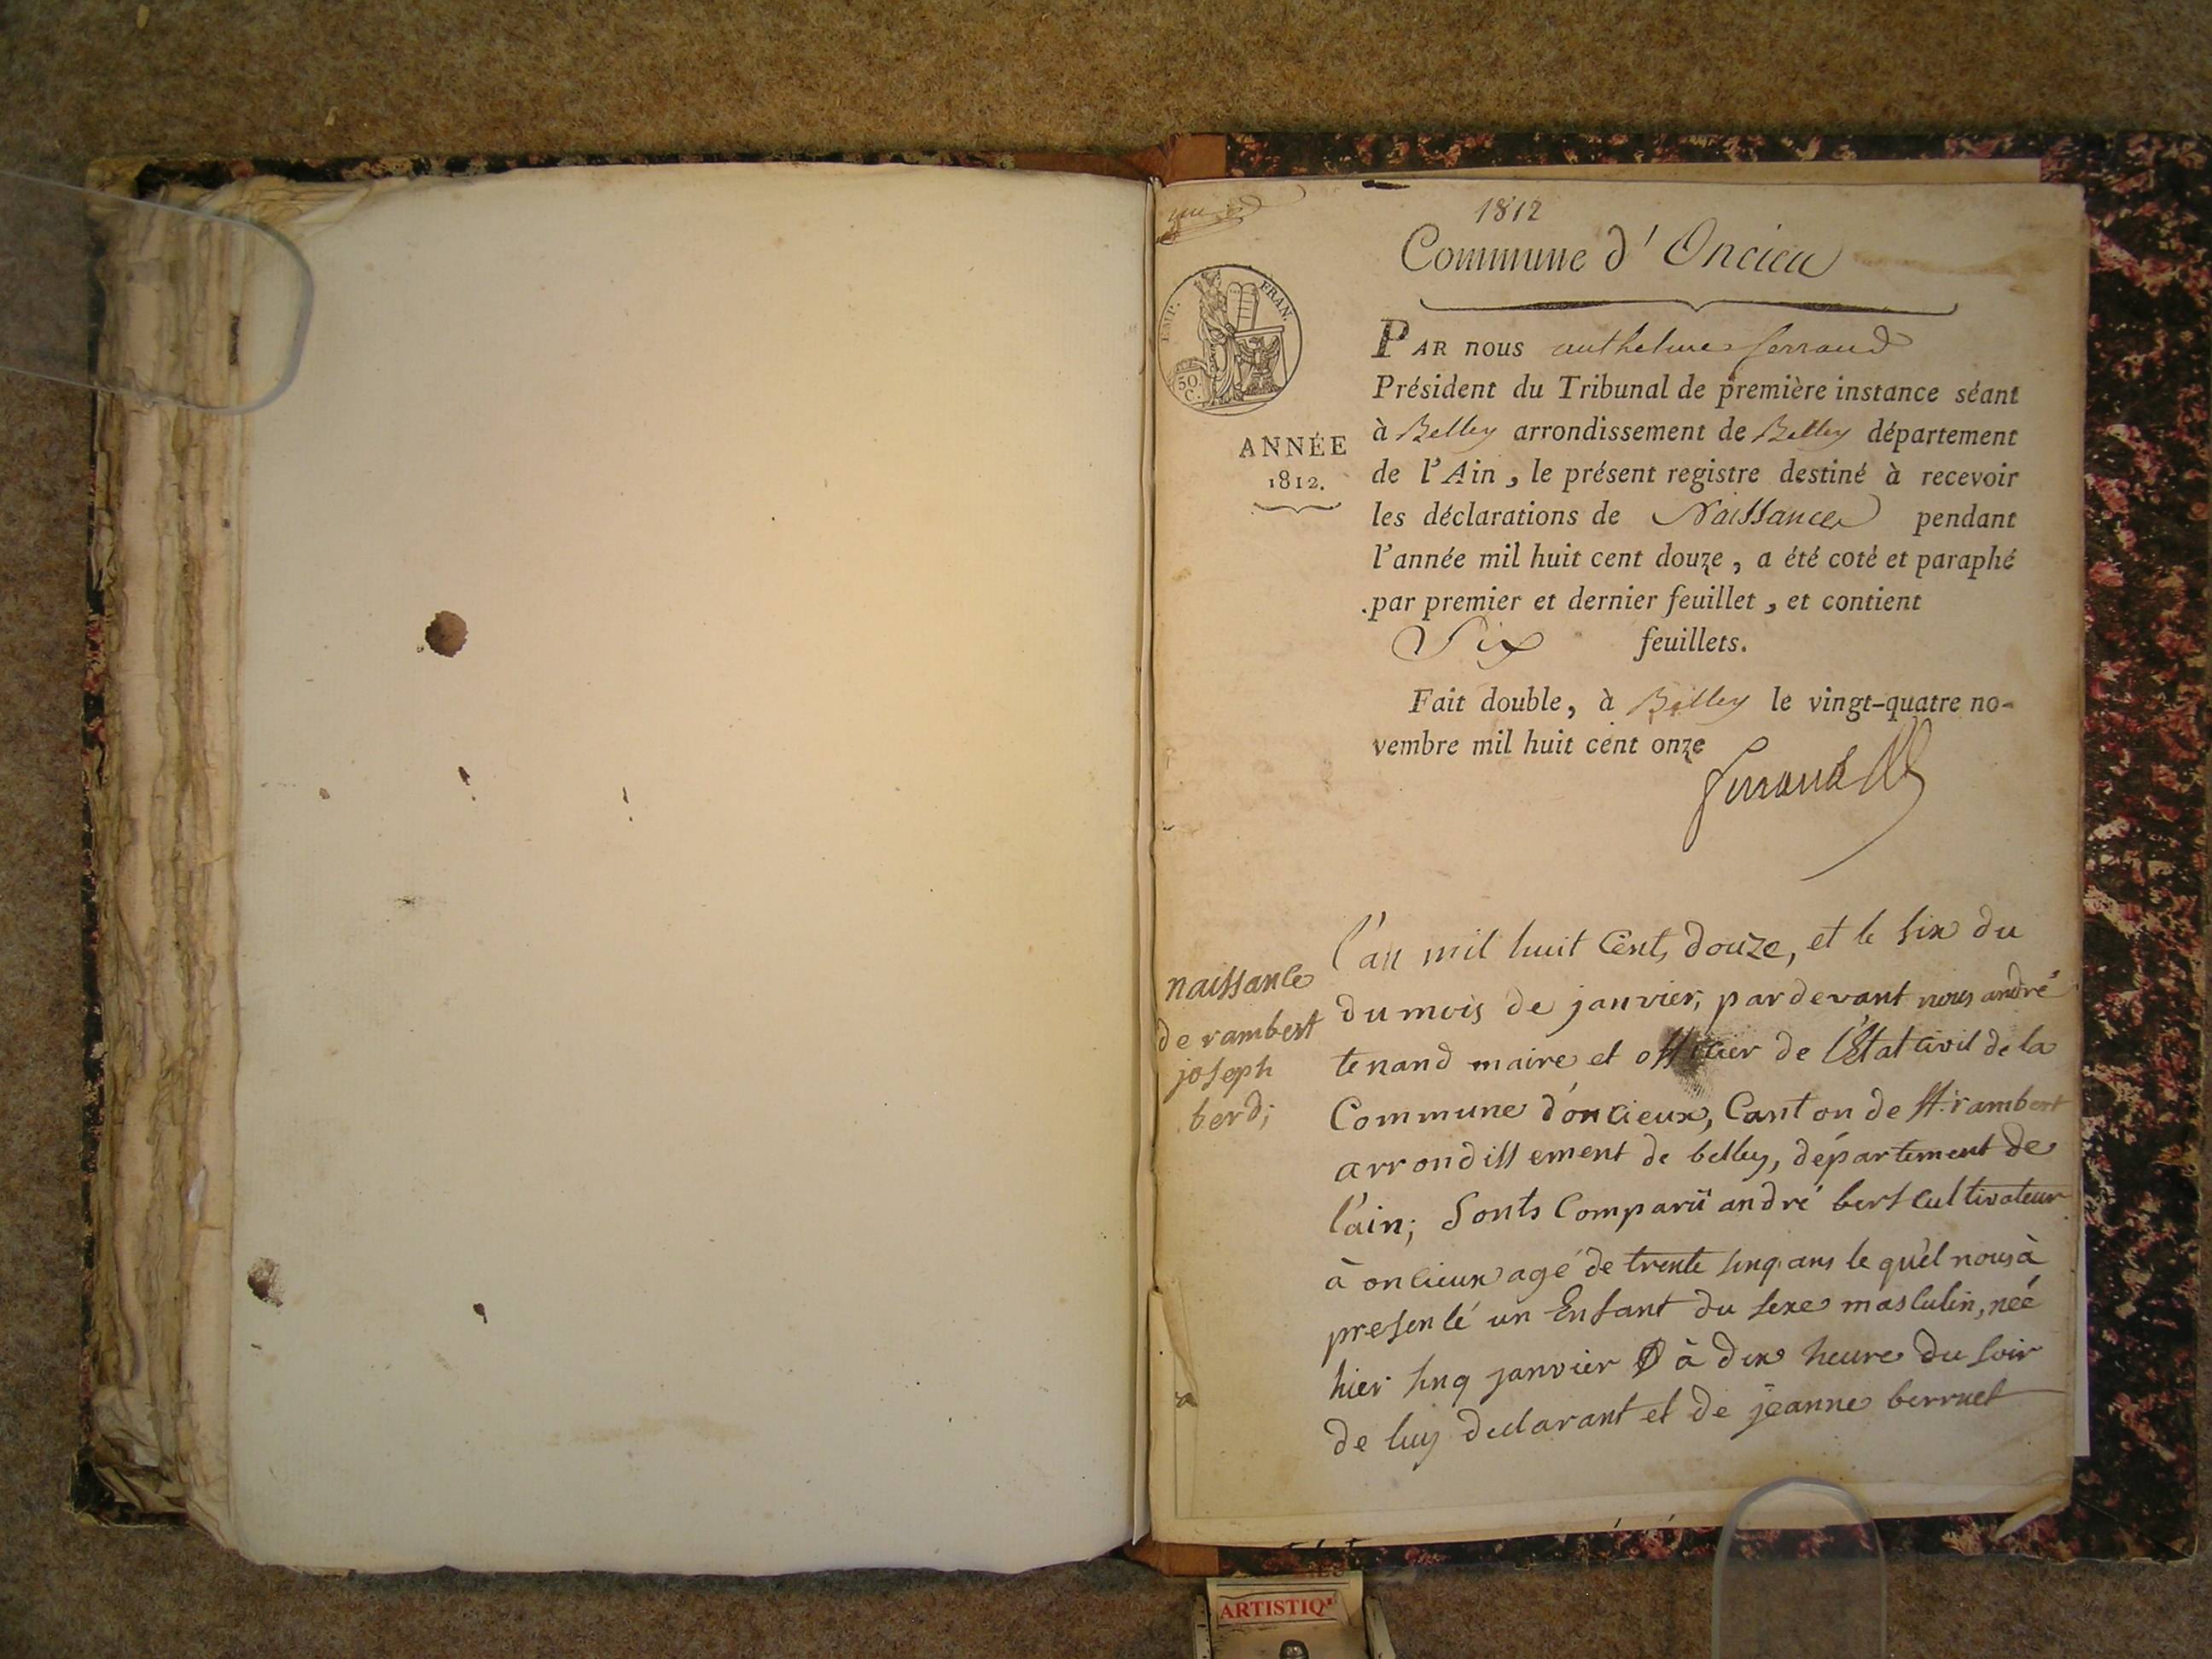 1812
Commune d'Oncieu
EMP. FRAN.
50. C.
ANNÉE
1812.
PAR nous anthelme ferrand
Président du Tribunal de première instance séant
à Belley arrondissement de Belley département
de l'Ain, le présent registre destiné à recevoir
les déclarations de Naissances pendant
l'année mil huit cent douze, a été coté et paraphé
par premier et dernier feuillet, et contient
Six feuillets.
Fait double, à Belley le vingt-quatre no-
vembre mil huit cent onze
Ferrand
naissance
de rambert
joseph
berd;
l'an mil huit cent douze, et le six du
du mois de janvier, par devant nous andré
tenand maire et officier de l'Etat civil de la
Commune d'oncieux, Canton de St. rambert
arrondissement de belley, département de
l'ain; Sonts Comparü andré bert cultivateur
à oncieux agé de trente sinq ans le quel nous à
presenté un Enfant du sexe masculin, néé
hier sinq janvier à dix heure du soir
de luy declarant et de jeanne berruet
ARTISTIQ